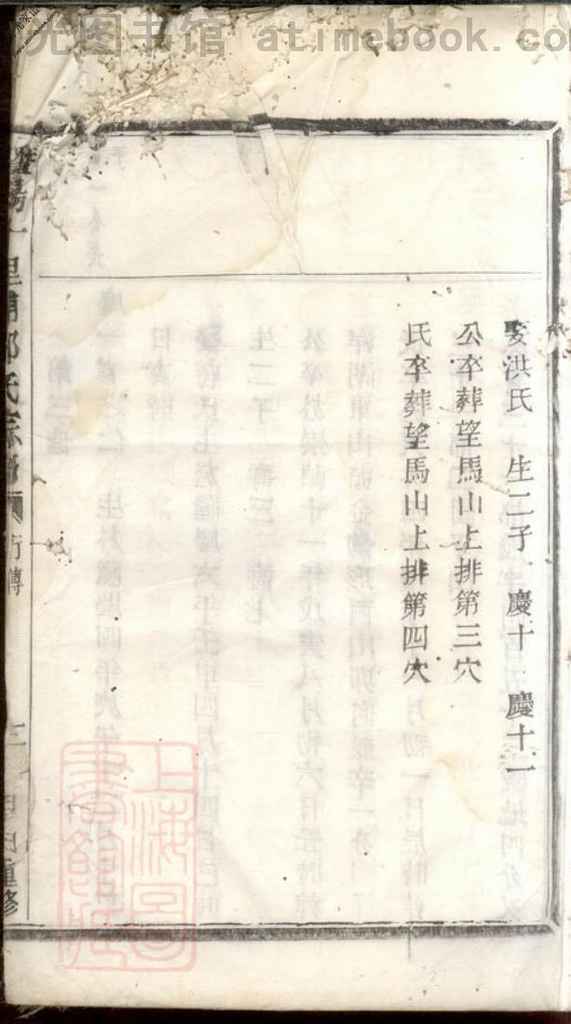 光图书馆 atimebook.com
娶洪氏 生二子 慶十 慶十一
公卒葬望馬山上排第三穴
氏卒葬望馬山上排第四穴
陽一里鋪邵氏宗譜 行傳 三 重修
上海圖書館藏